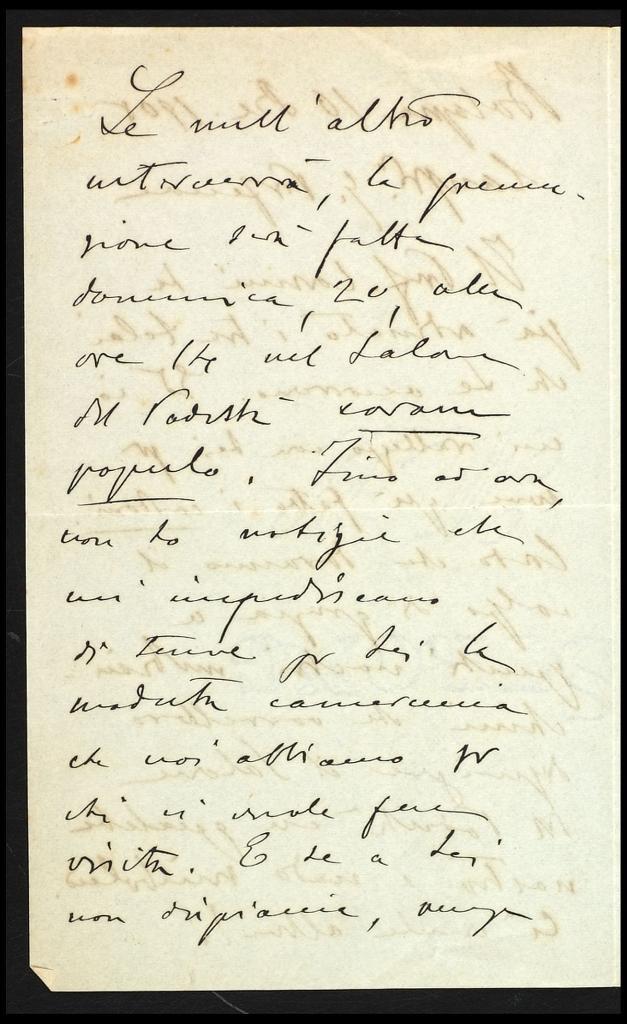 Se null'altro
interverrà, la premia-
zione sarà fatta
domenica, 20, alle
ore 14 nel Salone
del Podestà coram
populo. Fino ad ora,
non ho notizie che
mi impediscano
di tenere per Lei la
modesta cameruccia
che noi abbiamo per
chi ci vuole fare
visita. E se a Lei
non dispiacia, venga